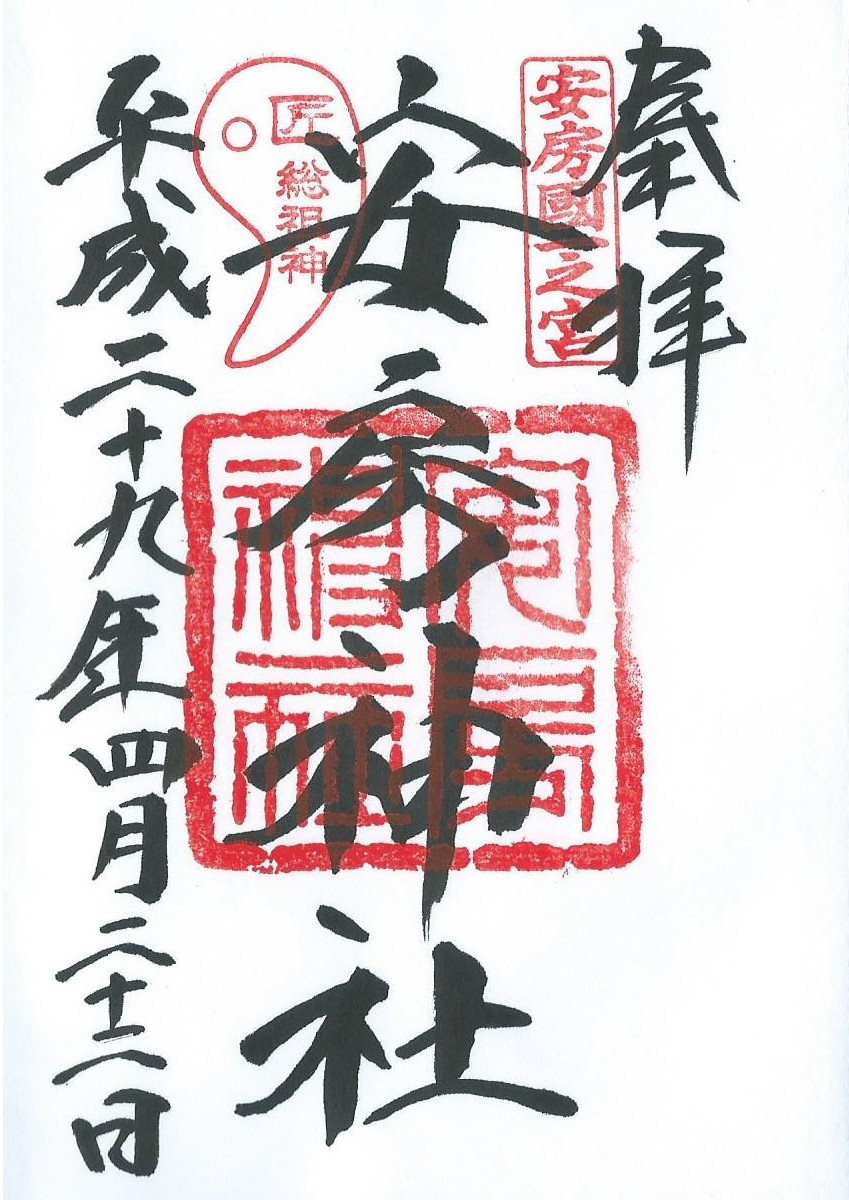 奉拝
安房國一之宮
安房神社
安房
神社
匠 総祖神
平成二十九年四月二十二日